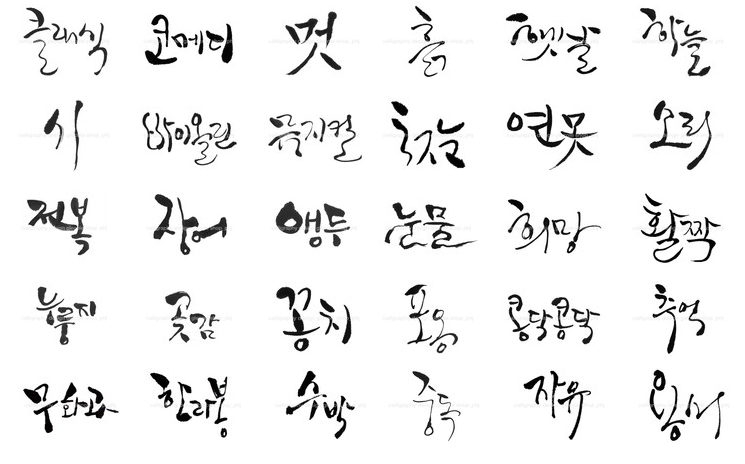 클래식 코메디 멋 흙 햇살 하늘
시 바이올린 뮤지컬 연못 오리
전복 장어 앵두 눈물 희망 활짝
누룽지 곶감 꽁치 포옹 콩닥콩닥 추억
무화과 한라봉 수박 중독 자유 용서